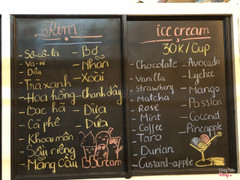 Kem
Sô-cô-la
Va-ni
Dâu
Trà xanh
Hoa hồng
Bạc hà
Cà phê
Khoai môn
Sầu riêng
Mãng Cầu
- Bơ
- Nhãn
- Xoài
- Chanh dây
- Dừa
- Dứa
Ice Cream
ice cream
30K/Cup
- Chocolate
- Vanilla
- Strawberry
- Matcha
- Rose
- Mint
- Coffee
- Taro
- Durian
- Custard-apple
- Avocado
- Lychee
- Mango
- Passion
- Coconut
- Pineapple